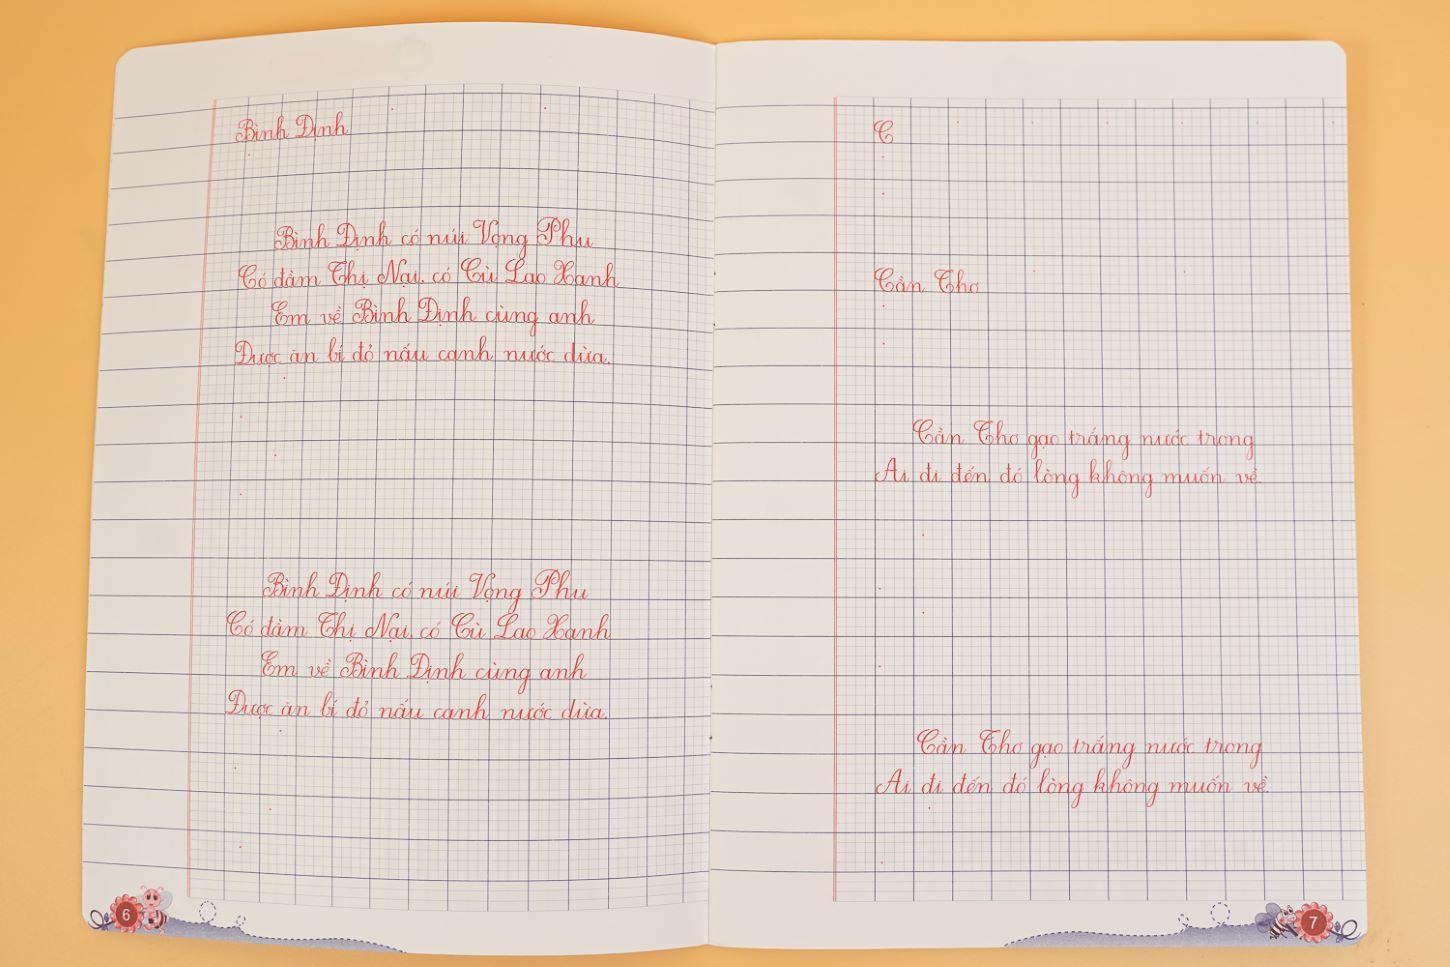 Bình Định
Bình Định có núi Vọng Phu
Có đầm Thị Nại, có Cù Lao Xanh
Em về Bình Định cùng anh
Được ăn bí đỏ nấu canh nước dừa.
Bình Định có núi Vọng Phu
Có đầm Thị Nại, có Cù Lao Xanh
Em về Bình Định cùng anh
Được ăn bí đỏ nấu canh nước dừa.
6
C
Cần Thơ
Cần Thơ gạo trắng nước trong
Ai đi đến đó lòng không muốn về.
Cần Thơ gạo trắng nước trong
Ai đi đến đó lòng không muốn về.
7